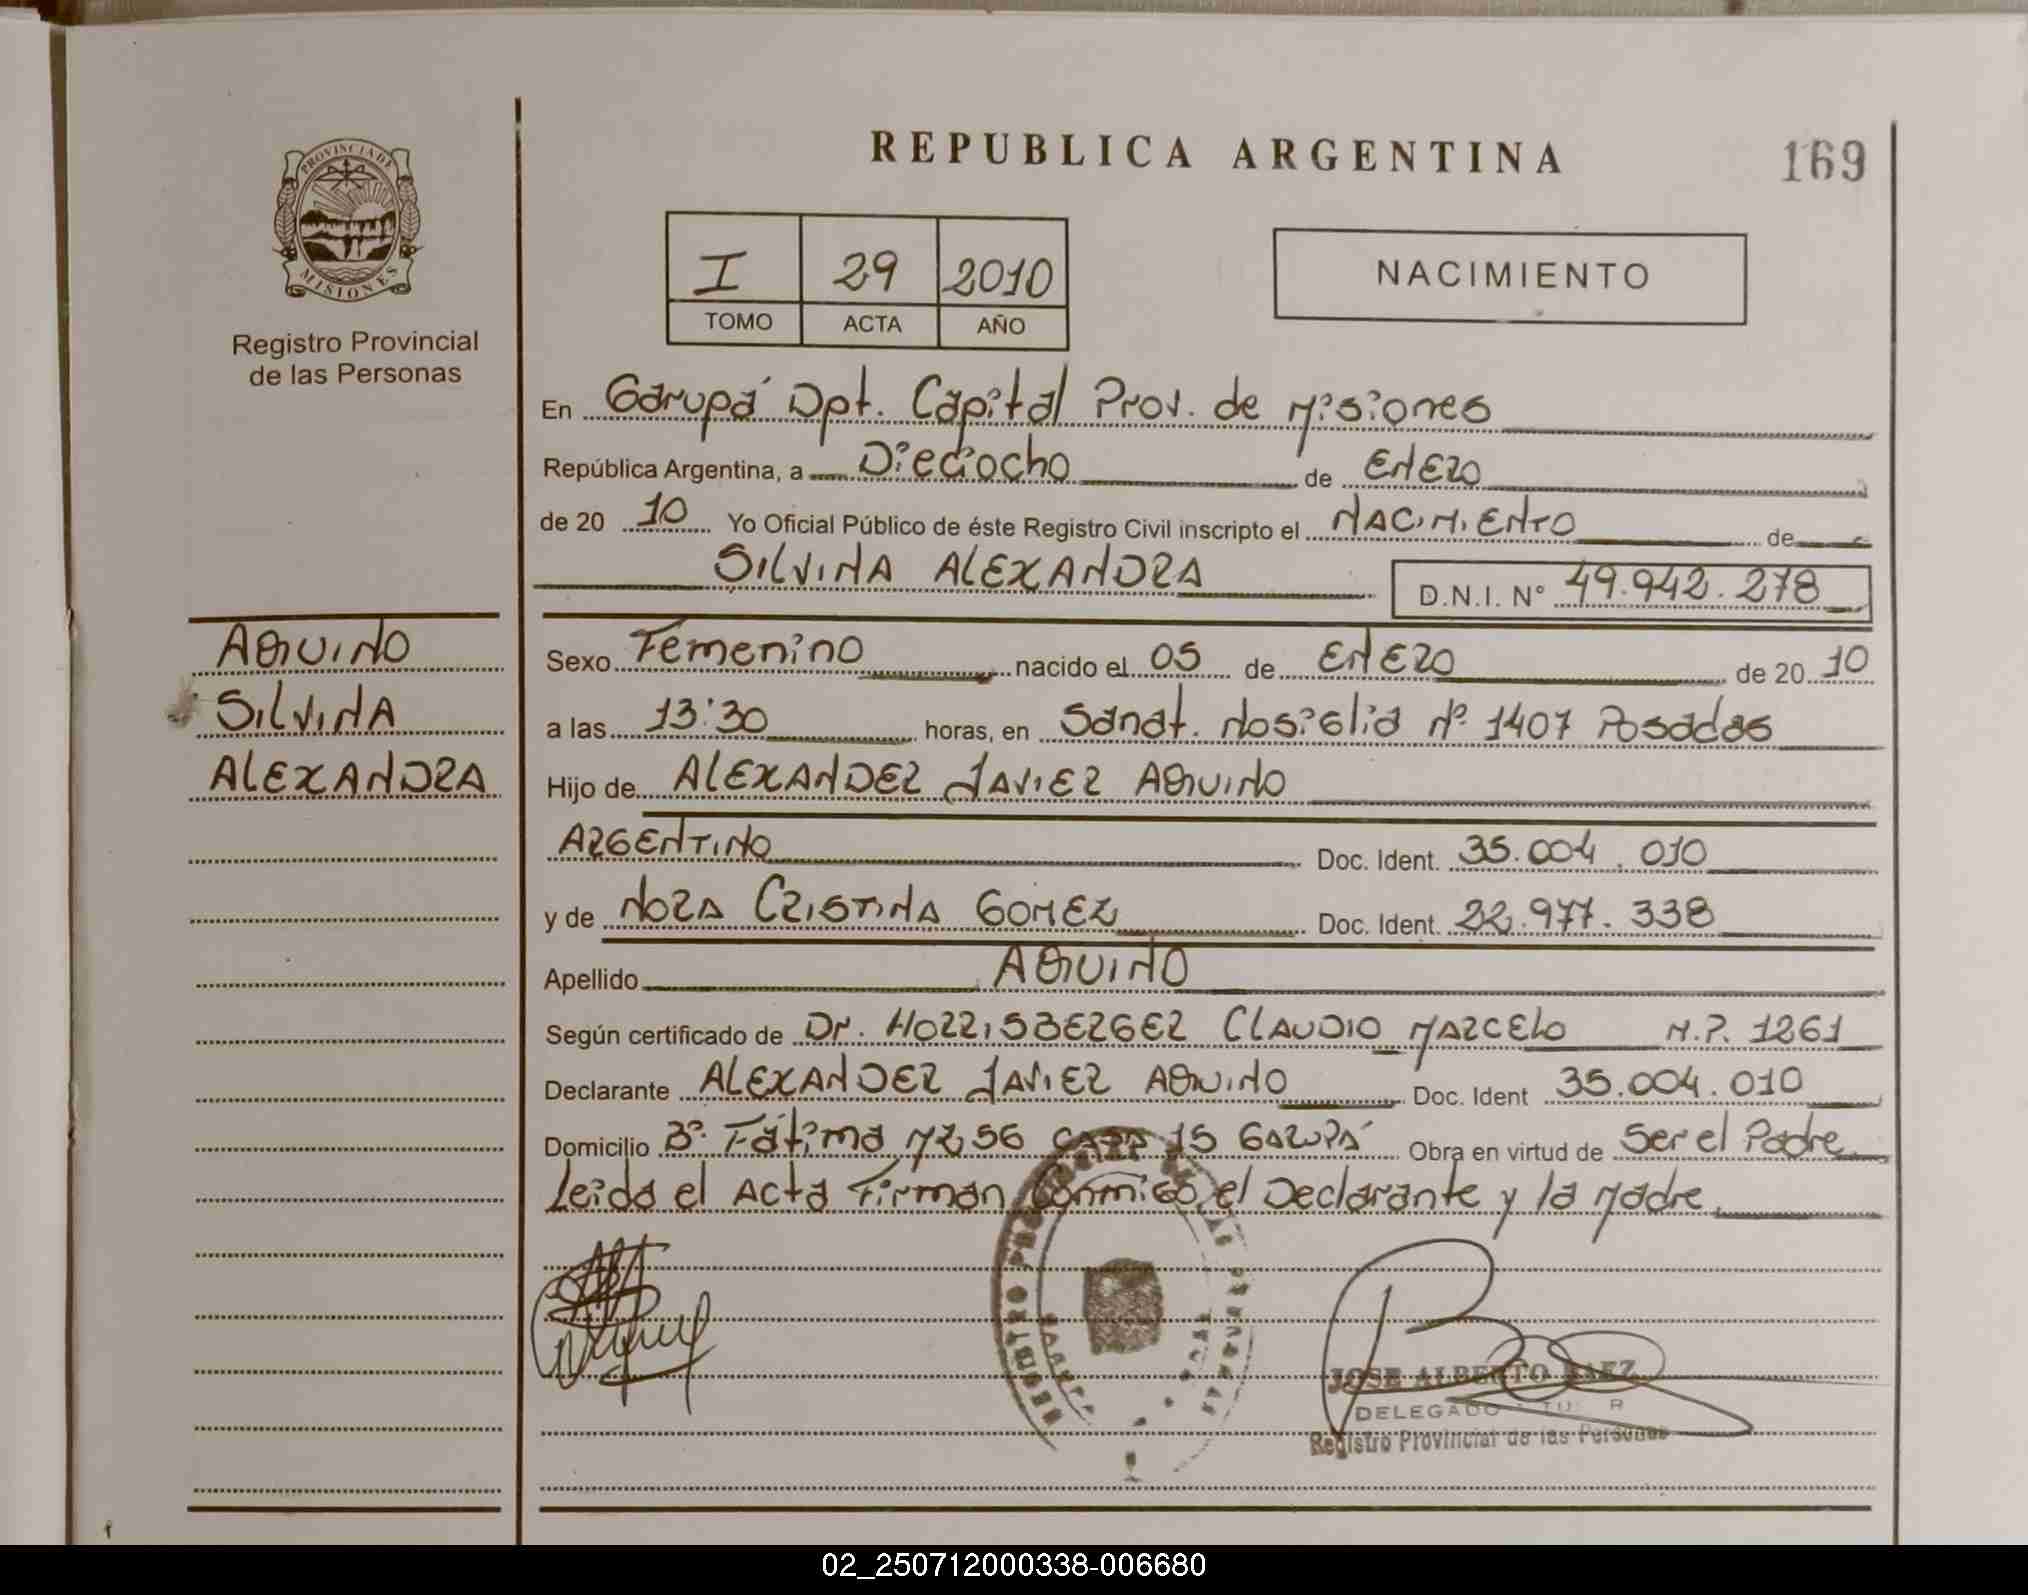 REPUBLICA ARGENTINA
169
PROVINCIA DE
MISIONES
Registro Provincial
de las Personas
I 29 2010
TOMO ACTA AÑO
NACIMIENTO
En Garupá Dpt. Capital Prov. de Misiones
República Argentina, a Dieciocho de ENERO
de 20 10 Yo Oficial Público de éste Registro Civil inscripto el NACIMIENTO de
SILVINA ALEXANDRA D.N.I. N° 49.942.278
AQUINO
SILVINA
ALEXANDRA
Sexo Femenino nacido el 05 de ENERO de 20 10
a las 13:30 horas, en Sanat. Nosiglia Nº 1407 Posadas
Hijo de ALEXANDER JAVIER AQUINO
ARGENTINO Doc. Ident. 35.004.010
y de NORA CRISTINA GOMEZ Doc. Ident. 22.977.338
Apellido AQUINO
Según certificado de Dr. HORRISBERGER CLAUDIO MARCELO M.P. 1261
Declarante ALEXANDER JAVIER AQUINO Doc. Ident 35.004.010
Domicilio Bº Fátima MZ 56 CASA 15 GARUPÁ Obra en virtud de Ser el Padre
Leida el Acta Firman Conmigo el Declarante y la Madre
JOSE ALBERTO BAEZ
DELEGADO
Registro Provincial de las Personas
02_250712000338-006680